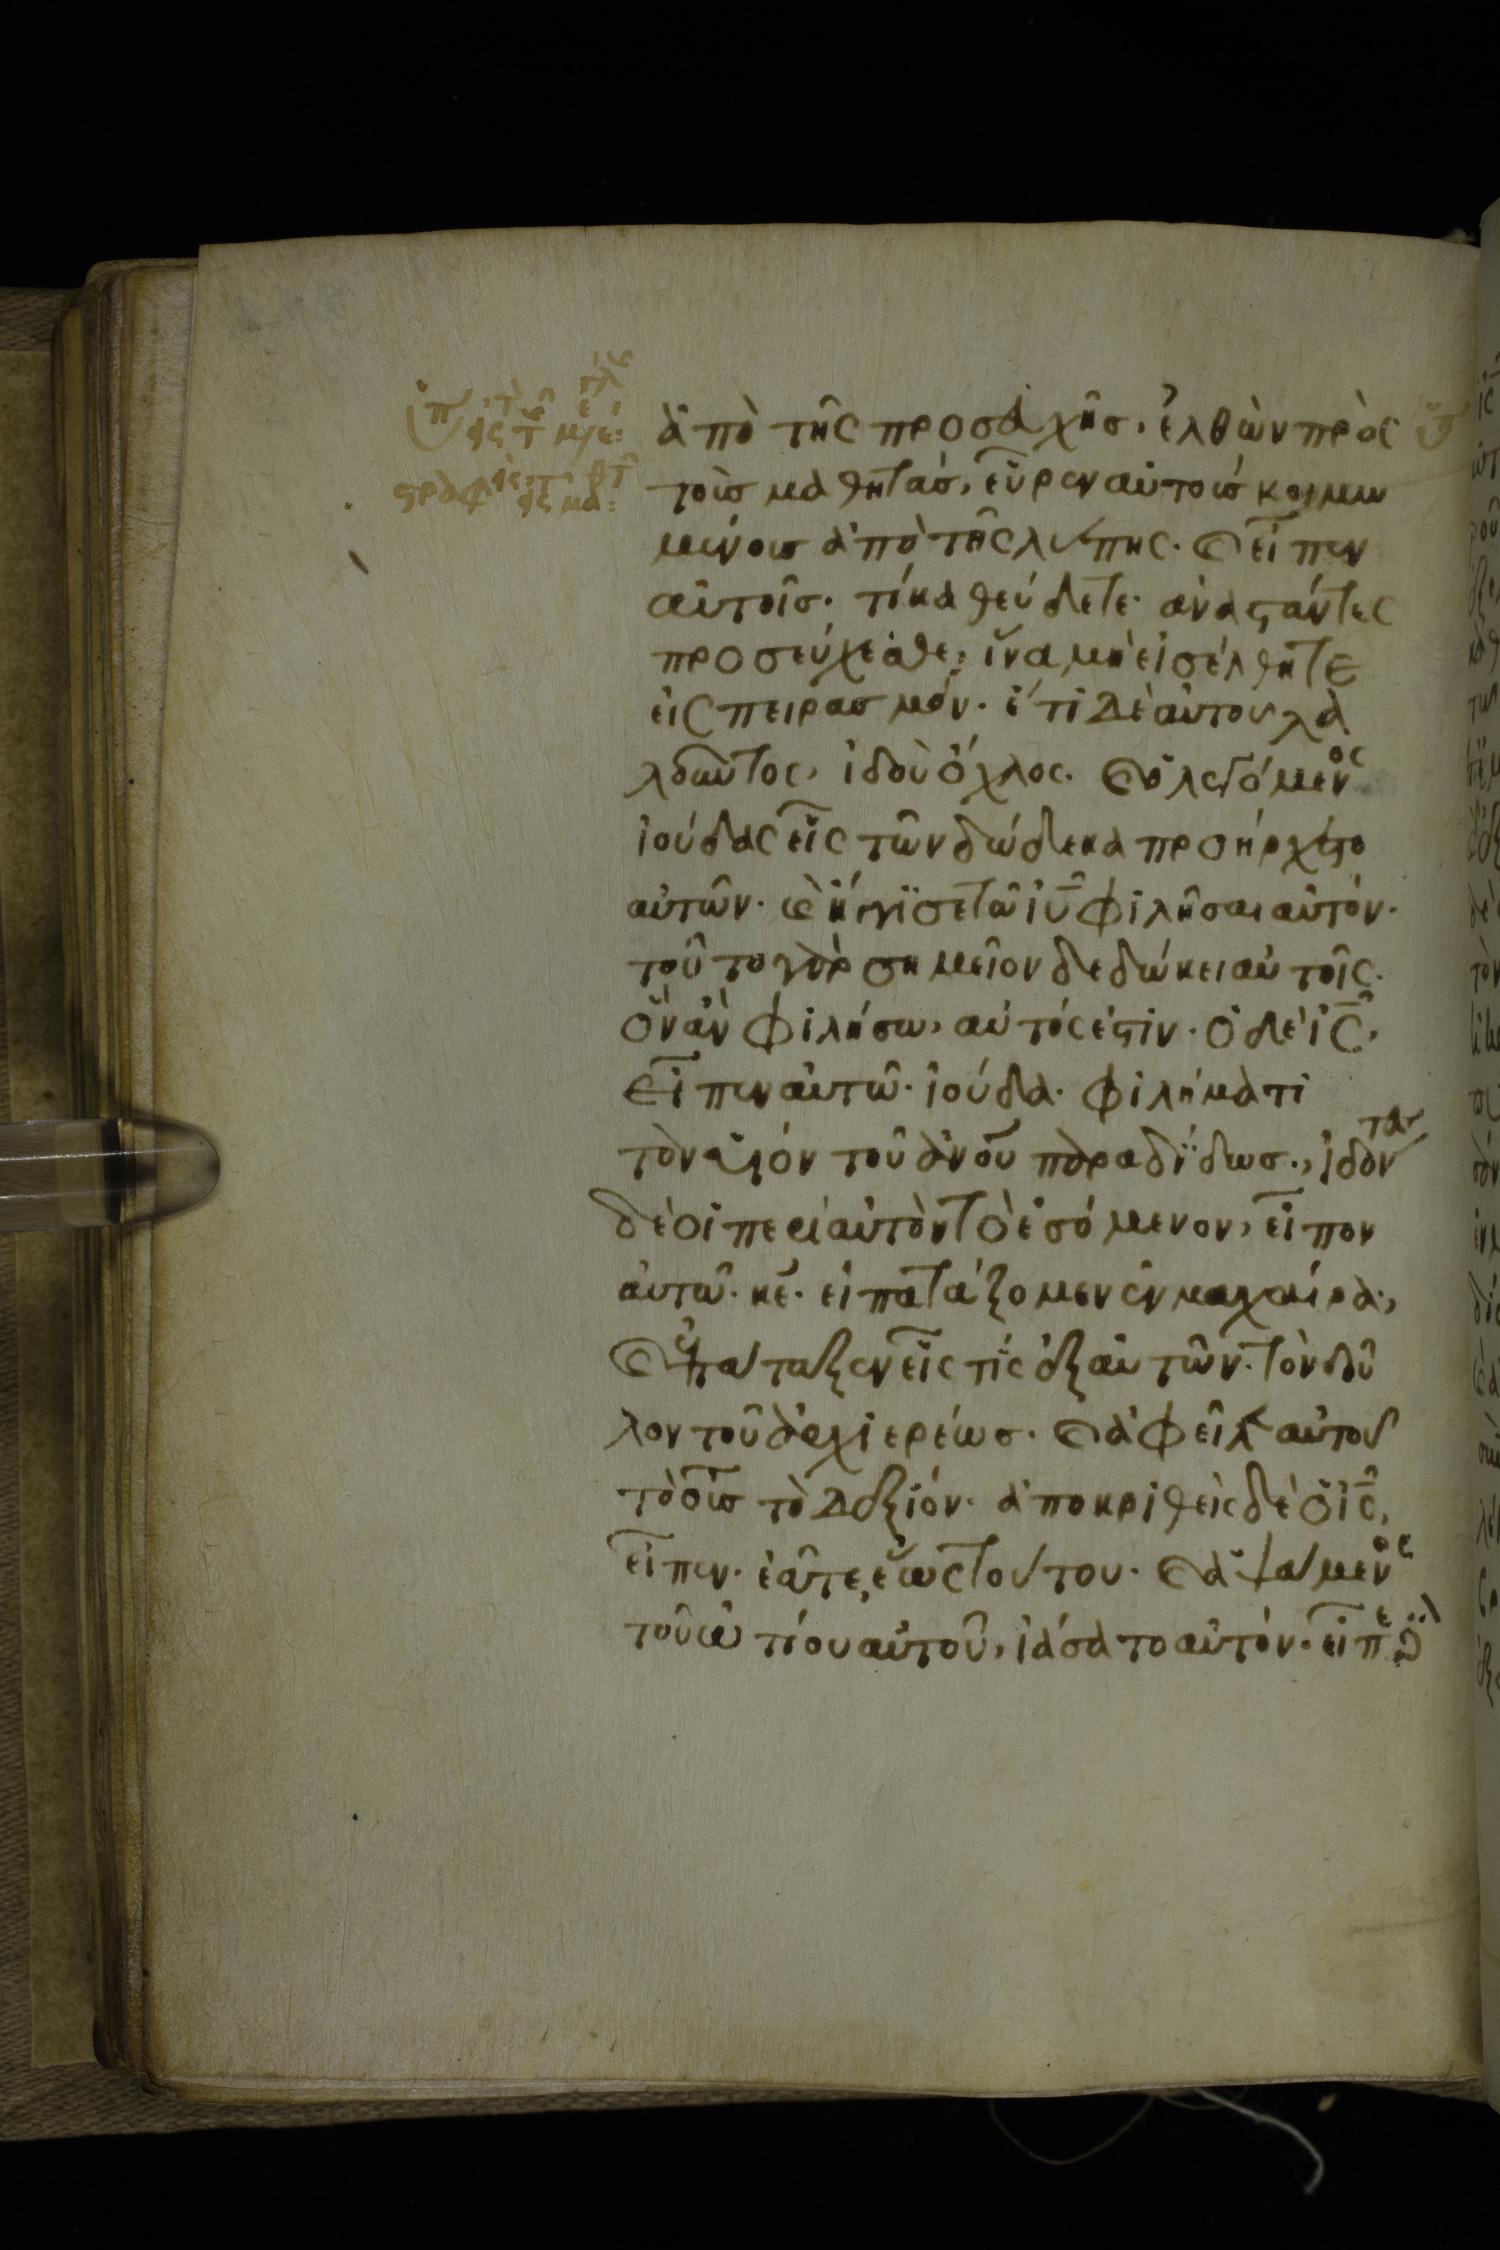 ἀπὸ τῆς προσευχῆς. ἐλθὼν πρὸς
τοὺς μαθητὰς, εὗρεν αὐτοὺς κοιμω
μένους ἀπὸ τῆς λύπης. καὶ εἶπεν
αὐτοῖς. τί καθεύδετε. ἀναστάντες
προσεύχεσθε, ἵνα μὴ εἰσέλθητε
εἰς πειρασμόν. ἔτι δὲ αὐτοῦ λα
λοῦντος, ἰδοὺ ὄχλος. καὶ ὁ λεγόμενος
ἰούδας εἷς τῶν δώδεκα προήρχετο
αὐτῶν. καὶ ἤγγισε τῶ ιυ φιλῆσαι αὐτόν.
τοῦτο γὰρ σημεῖον δεδώκει αὐτοῖς.
ὃν ἂν φιλήσω, αὐτός ἐστιν. ὁ δὲ ις,
εἶπεν αὐτῶ. ἰούδα. φιλήματι
τὸν υἱὸν τοῦ ανου παραδίδως., ἰδόντες
δὲ οἱ περὶ αὐτὸν τὸ ἐσόμενον, εἶπον
αὐτῶ. κε. εἰ πατάξομεν ἐν μαχαίρα,
καὶ ἐπάταξεν εἷς τίς ἐξ αὐτῶν. τὸν δοῦ
λον τοῦ ἀρχιερέως. καὶ ἀφεῖλεν αὐτοῦ
τὸ οὖς τὸ δεξιόν. ἀποκριθεὶς δὲ ὁ ις,
εἶπεν. ἐᾶτε, ἕως τούτου. καὶ ἁψάμενος
τοῦ ὠτίου αὐτοῦ, ἰάσατο αὐτόν. εἶπε δὲ